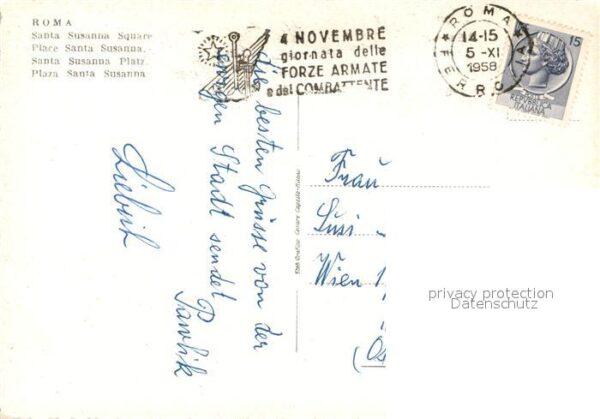 ROMA
Santa Susanna Square
Place Santa Susanna.
Santa Susanna Platz.
Plaza Santa Susanna
4 NOVEMBRE
giornata delle
FORZE ARMATE
e del COMBATTENTE
ROMA
14-15
5-XI
1958
FERROVIA
15
REPVBBLICA
ITALIANA
Die besten Grüsse von der
ewigen Stadt sendet
Pawlik
Frau
Susi
Wien 1
(Ös
privacy protection
Datenschutz